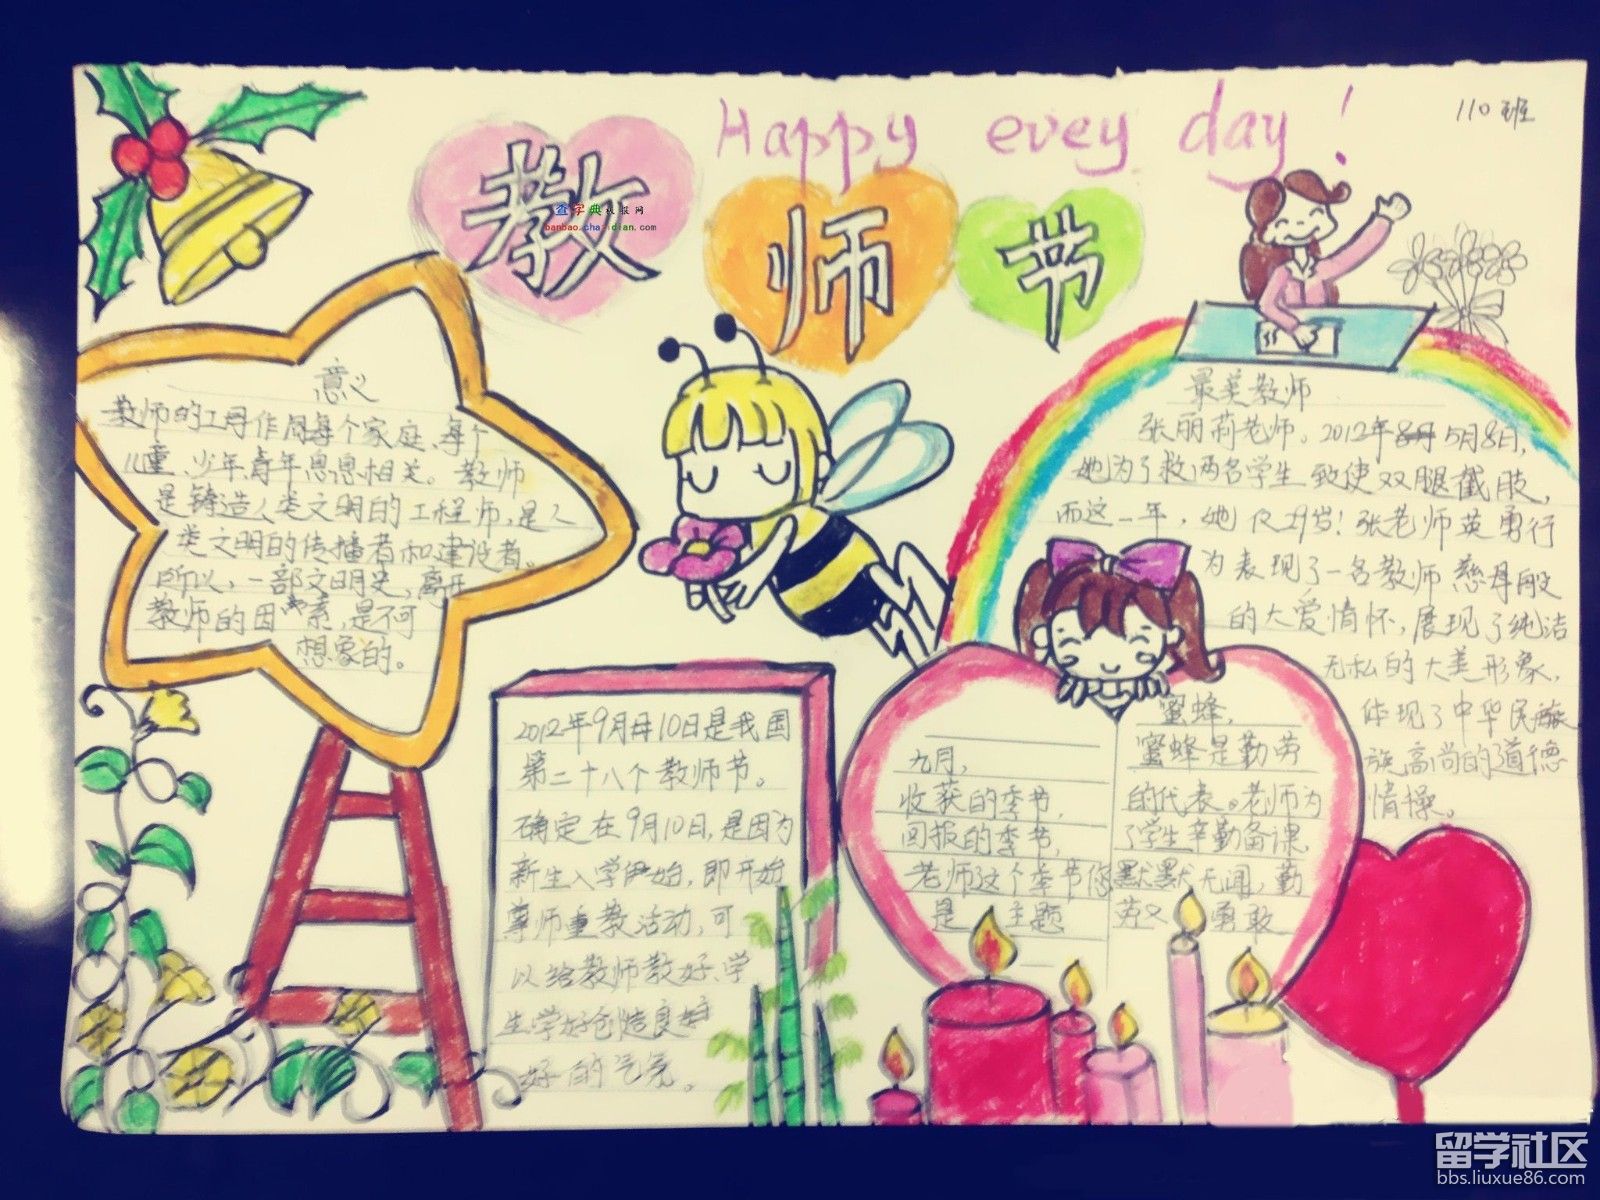 Happy evey day!
110班
教师节
查字典手抄报网
banbao.chazidian.com
意义
教师的工作同每个家庭、每个
儿童、少年、青年息息相关。教师
是铸造人类文明的工程师,是人
类文明的传播者和建设者。
所以,一部文明史,离开
教师的因素,是不可
想象的。
2012年9月10日是我国
第二十八个教师节。
确定在9月10日,是因为
新生入学伊始,即开始
尊师重教活动,可
以给教师教好、学
生学好创造良好
好的气氛。
最美教师
张丽莉老师。2012年5月8日,
她为了救两名学生致使双腿截肢,
而这一年,她仅29岁!张老师英勇行
为表现了一名教师慈母般
的大爱情怀,展现了纯洁
无私的大美形象,
体现了中华民族
族高尚的道德
情操。
九月,
收获的季节,
回报的季节,
老师这个季节你
是主题
蜜蜂,
蜜蜂是勤劳
的代表。老师为
了学生辛勤备课,
默默无闻,勤
劳又勇敢
留学社区
bbs.liuxue86.com